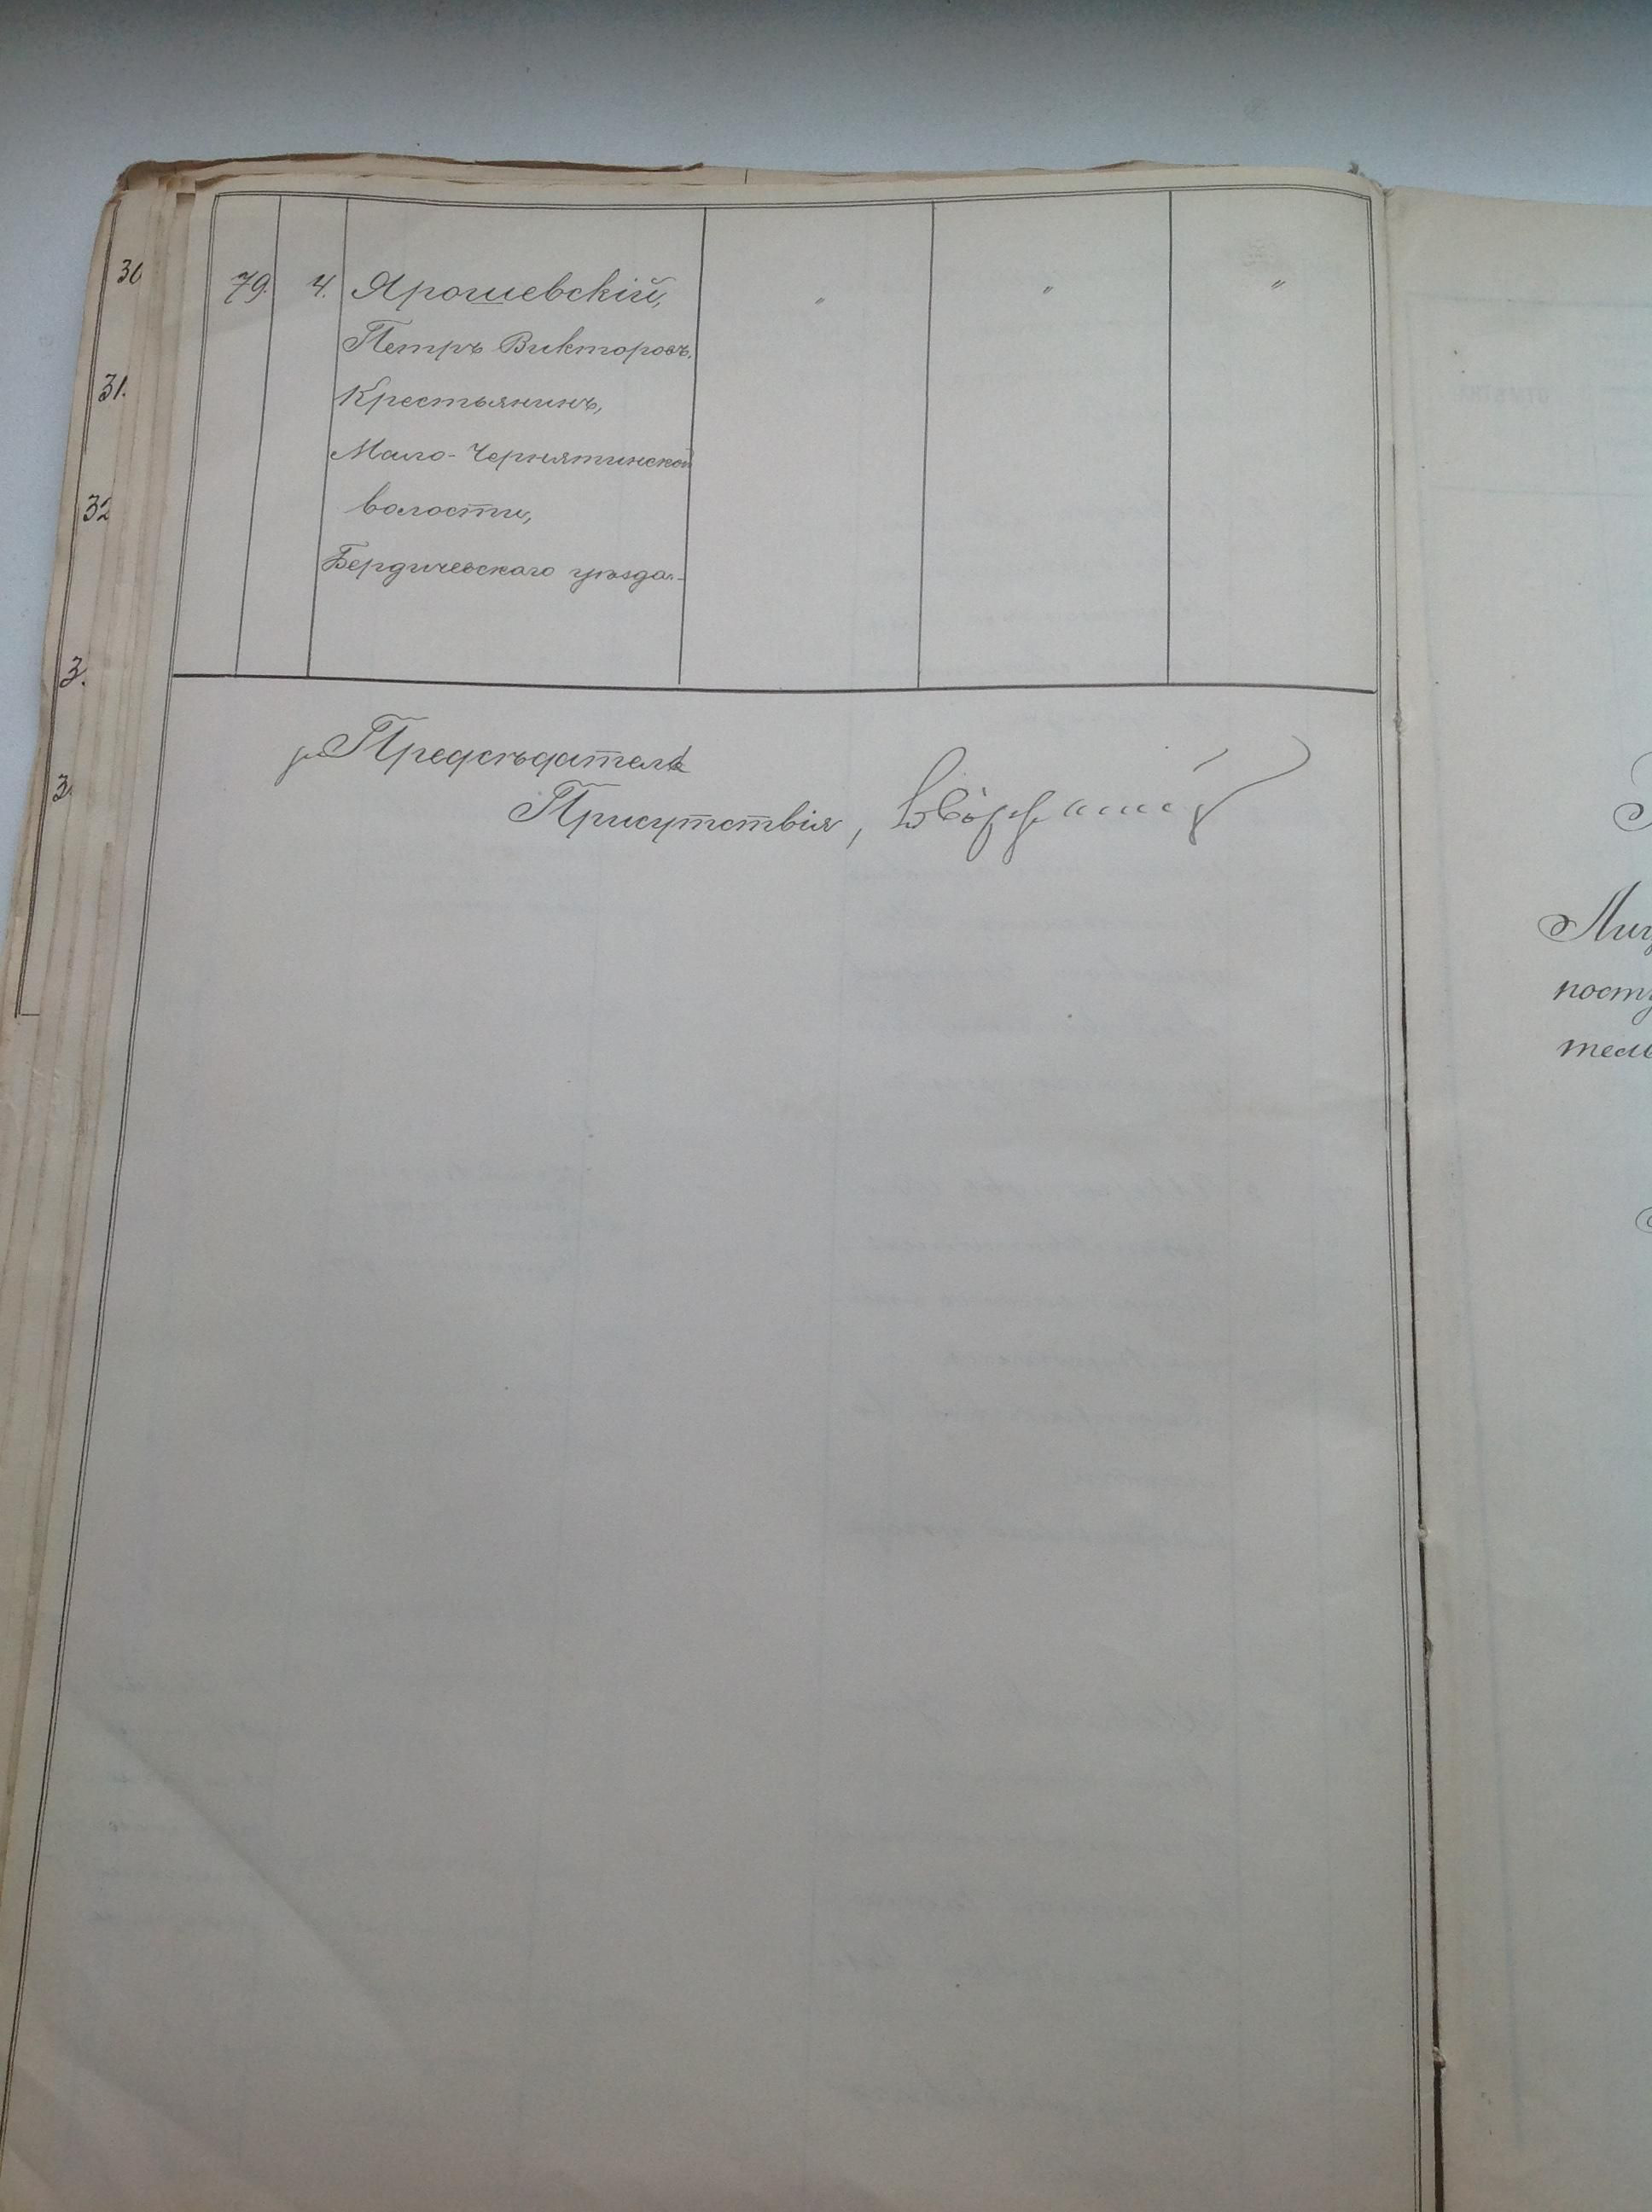 30
31.
32
3.
3.
79. 4. Ярошевскій, " " "
Петръ Викторовъ,
Крестьянинъ,
Мало-Чернятинской
волости,
Бердичевскаго уѣзда.-
за Предсѣдателя
Присутствія,
Лиц
посту
тель